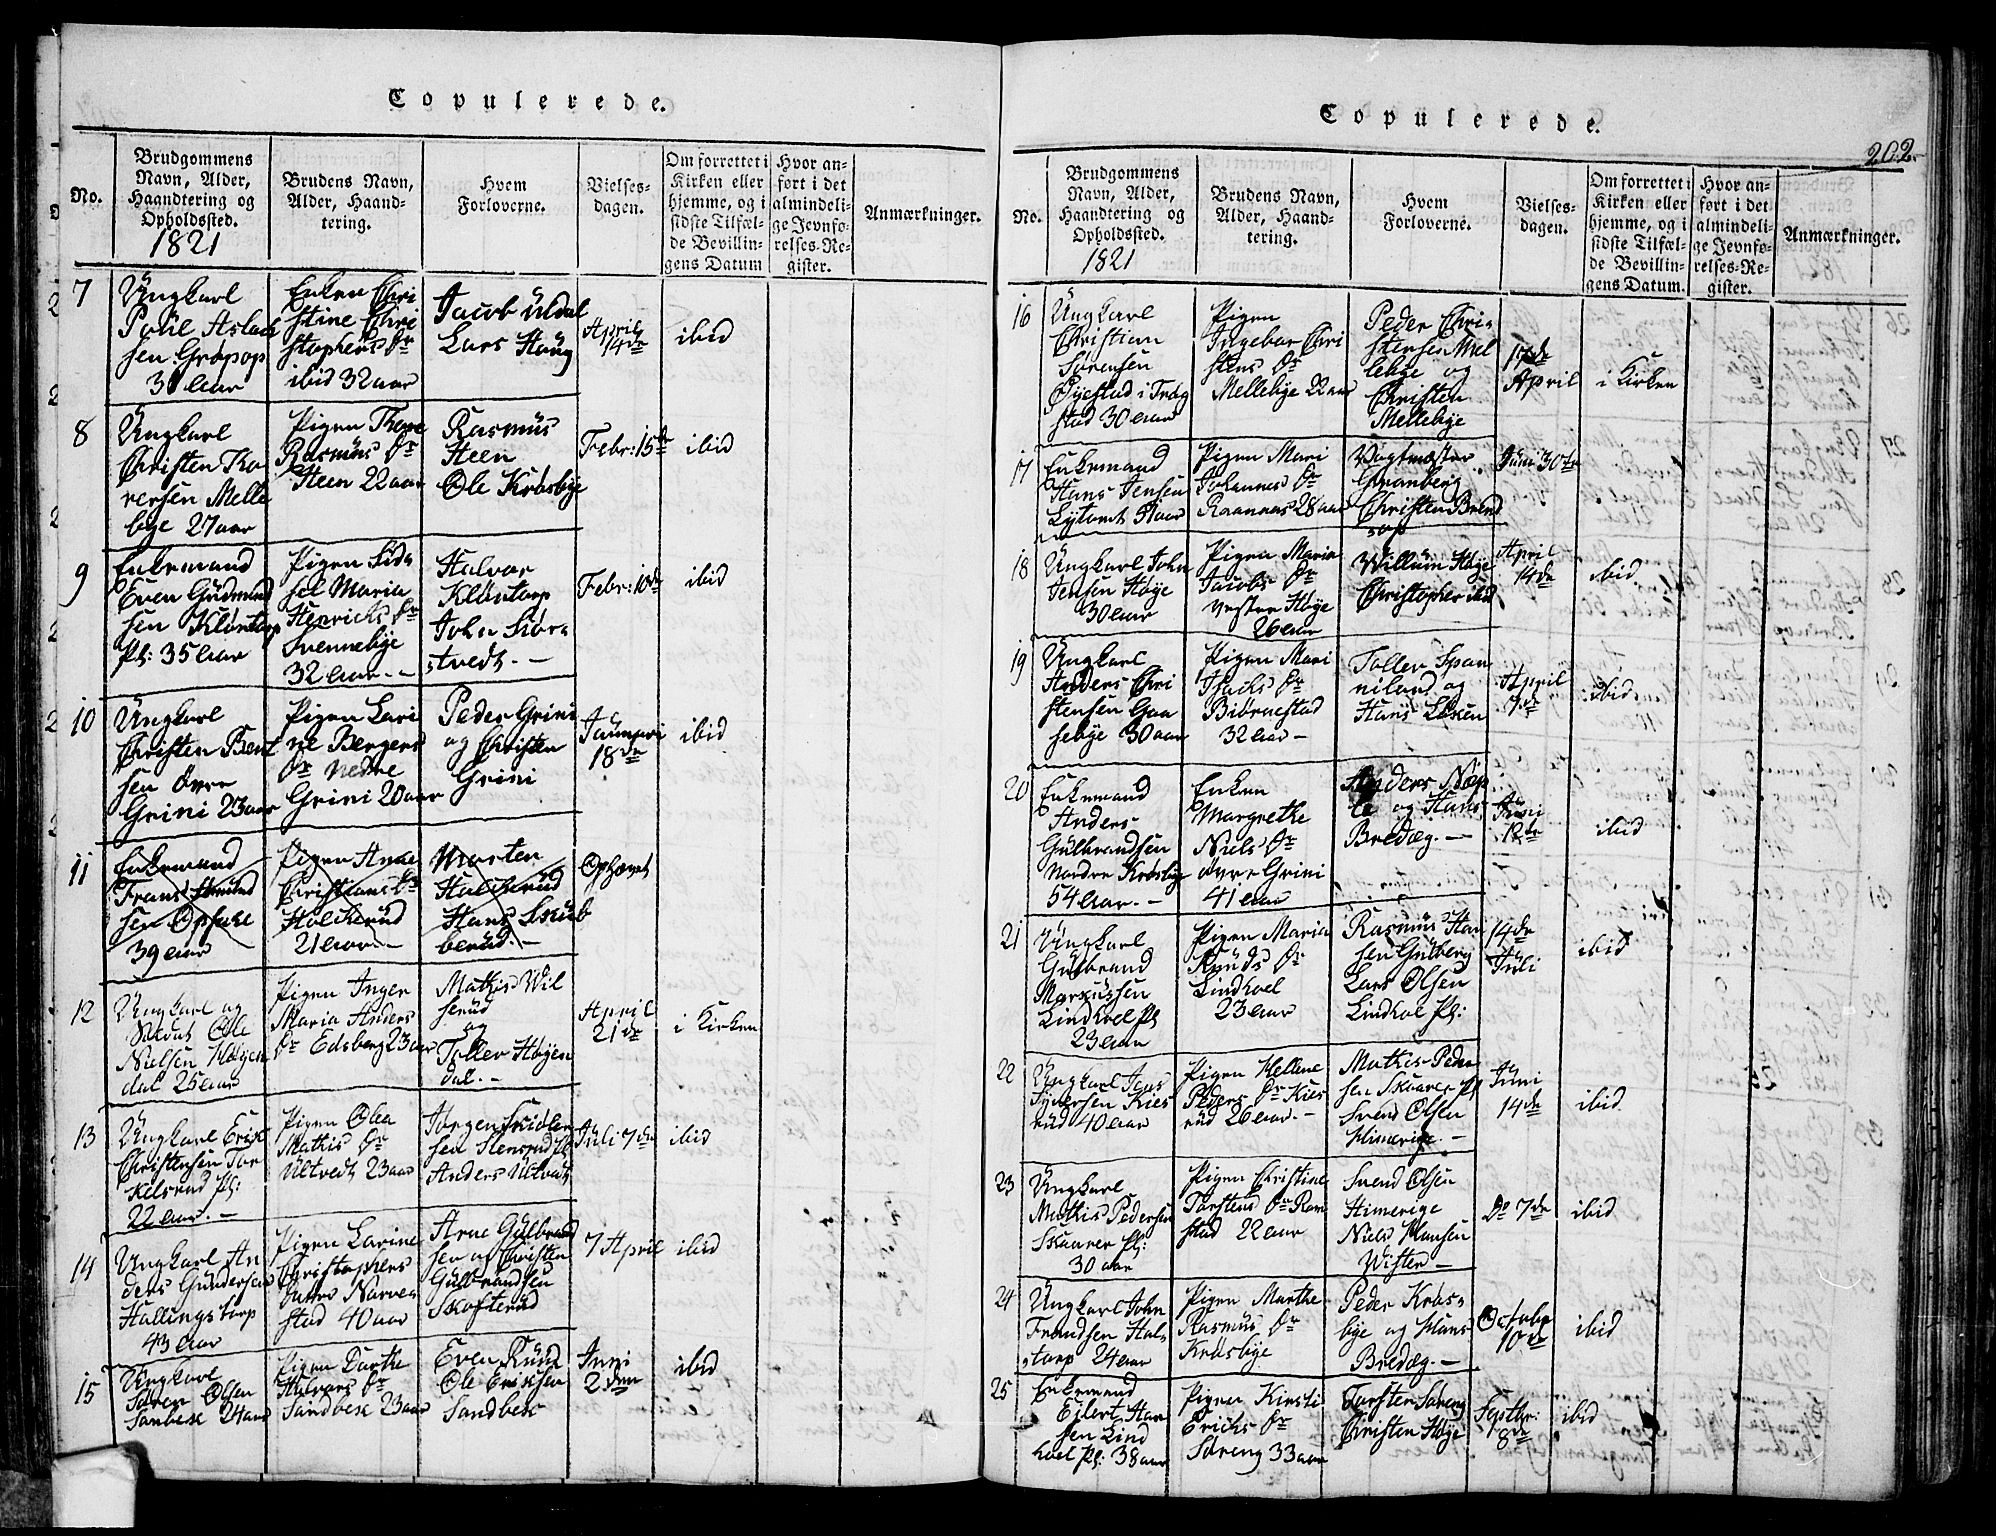 Copulerede.
No.
Brudgommens Navn, Alder, Haandtering og Opholdssted.
1821
Brudens Navn, Alder, Haandtering.
Hvem Forloverne.
Vielsesdagen.
Om forrettet i Kirken eller hjemme, og i sidste Tilfælde Bevillingens Datum
Hvor anført i det almindelige Jevnførelses-Register.
Anmærkninger.
7
Ungkarl
Poul Aslach
sen Grøpop
30 Aar
Enken Chri
stine Chri
stophers Dr
ibid 32 aar
Jacob Uldal
Lars Haug
April
14de
ibid
8
Ungkarl
Christen To
rersen Melle
bye 27 aar
Pigen Thore
Rasmus Dr
Heen 22 aar
Rasmus
Heen
Ole Kråsbye
Febr: 15de
ibid
9
Enkemand
Even Gudmund
sen Kløntorp
Pl: 35 Aar
Pigen Sid
sel Maria
Henricks Dr
Svennebye
32 Aar.-
Halvor
Kløntorp
John Kiør
stvedt.-
Febr: 10de
ibid
10
Ungkarl
Christen Bent
sen øvre
Grini 23 aar
Pigen Lari
ne Bergers
Dr nedre
Grini 20 aar
Peder Grini
og Christen
Grini
Januari
18de
ibid
11
Enkemand
Frans Amund
sen Opsahe
39 Aar
Pigen Anne
Christians Dr
Halckerud
21 Aar.-
Morten
Halckerud
Hans Skub
berud.-
Ophævet
12
Ungkarl og
Soldat Ole
Nielsen Høyen
dal 25 Aar
Pigen Inger
Maria Anders
Dr Edsberg 23 aar
Mathis Wil
serud
og
Toller Høyen
dal.-
April
21de
i Kirken
13
Ungkarl Erik
Christensen Tor
kelsrud Pl:
22 Aar.-
Pigen Olea
Mathis Dr
Ultvedt 23 aar
Jørgen
sen Stensrud Pl
Anders Ultvedt
Juli 7de
ibid
14
Ungkarl An
ders Gundersen
Hallingstorp
43 Aar
Pigen Larine
Christophers
Datter Narve
stad 40 Aar
Arne Gulbrand
sen og Christen
Gulbrandsen
Skofterud
7 April
ibid
15
Ungkarl
Søren Olsen
Sanbek 24 aar
Pigen Dorthe
Halvors Dr
Sandbek 23 aar
Even Ruud
Ole Eriksen
Sandbek
Juni
2den
ibid
Copulerede.
202.
No.
Brudgommens Navn, Alder, Haandtering og Opholdssted.
1821
Brudens Navn, Alder, Haandtering.
Hvem Forloverne.
Vielsesdagen.
Om forrettet i Kirken eller hjemme, og i sidste Tilfælde Bevillingens Datum.
Hvor anført i det almindelige Jevnførelses-Register.
Anmærkninger.
16
Ungkarl
Christian
Sørensen
Øyestad i Trøg
stad 30 Aar
Pigen
Ingebor Chri
stens Dr
Mellebye 22 aar
Peder Chri
stensen Mel
lebye og
Christen
Mellebye
17de
April
i Kirken
17
Enkemand
Hans Jensen
Lytomt 51 aar
Pigen Mari
Johannes Dr
Raanaas 28 aar
Vagtmester
Granberg
Christen Brend
sop
Juni 30te
18
Ungkarl John
Jensen Høye
30 Aar
Pigen Maria
Jacobs Dr
vestre Høye
26 Aar
Willum Høye
Christopher ibid
April
14de
ibid
19
Ungkarl
Anders Chri
stensen Gaa
sebye 30 aar
Pigen Mari
Isacks Dr
Biørnestad
32 Aar -
Toller Span
niland og
Hans Løken
April
7de
ibid
20
Enkemand
Anders
Gulbrandsen
nordre Kråsbye
54 Aar.-
Enken
Margrethe
Niels Dr
øvre Grini
41 Aar
Anders Nøp
le og Hans
Bredæg.-
Juni
12de
ibid
21
Ungkarl
Gulbrand
Marcussen
Lindhoel Pl
23 Aar
Pigen Maria
Knuds Dr
Lindhoel
23 Aar
Rasmus Han
sen Gulberg
Lars Olsen
Lindhol Pl:
14de
Juli
ibid
22
Ungkarl Jens
Syversen Kies
rud 40 Aar
Pigen Hellene
Peders Dr Kies
rud 26 Aar.-
Mathis Peder
sen Skaarer Pl
Svend Olsen
Himerige.-
Juni
14de
ibid
23
Ungkarl
Mathis Pedersen
Skaarer Pl:
30 Aar
Pigen Christine
Torstens Dr Ram
stad 22 Aar
Svend Olsen
Himerige
Niels Hansen
Wister -
Do 7de
ibid
24
Ungkarl John
Frandsen Hals
torp 24 Aar
Pigen Marthe
Rasmus Dr
Kråsbye
Peder Krås
bye og Hans
Bredæg.-
Octobr
10de
ibid
25
Enkemand
Eilert Han
sen Lind
hoel Pl: 38 aar
Pigen Kirsti
Erichs Dr
Søreng 33 aar
Torsten Søreng
Christen Høye
Septbr:
8de
ibid